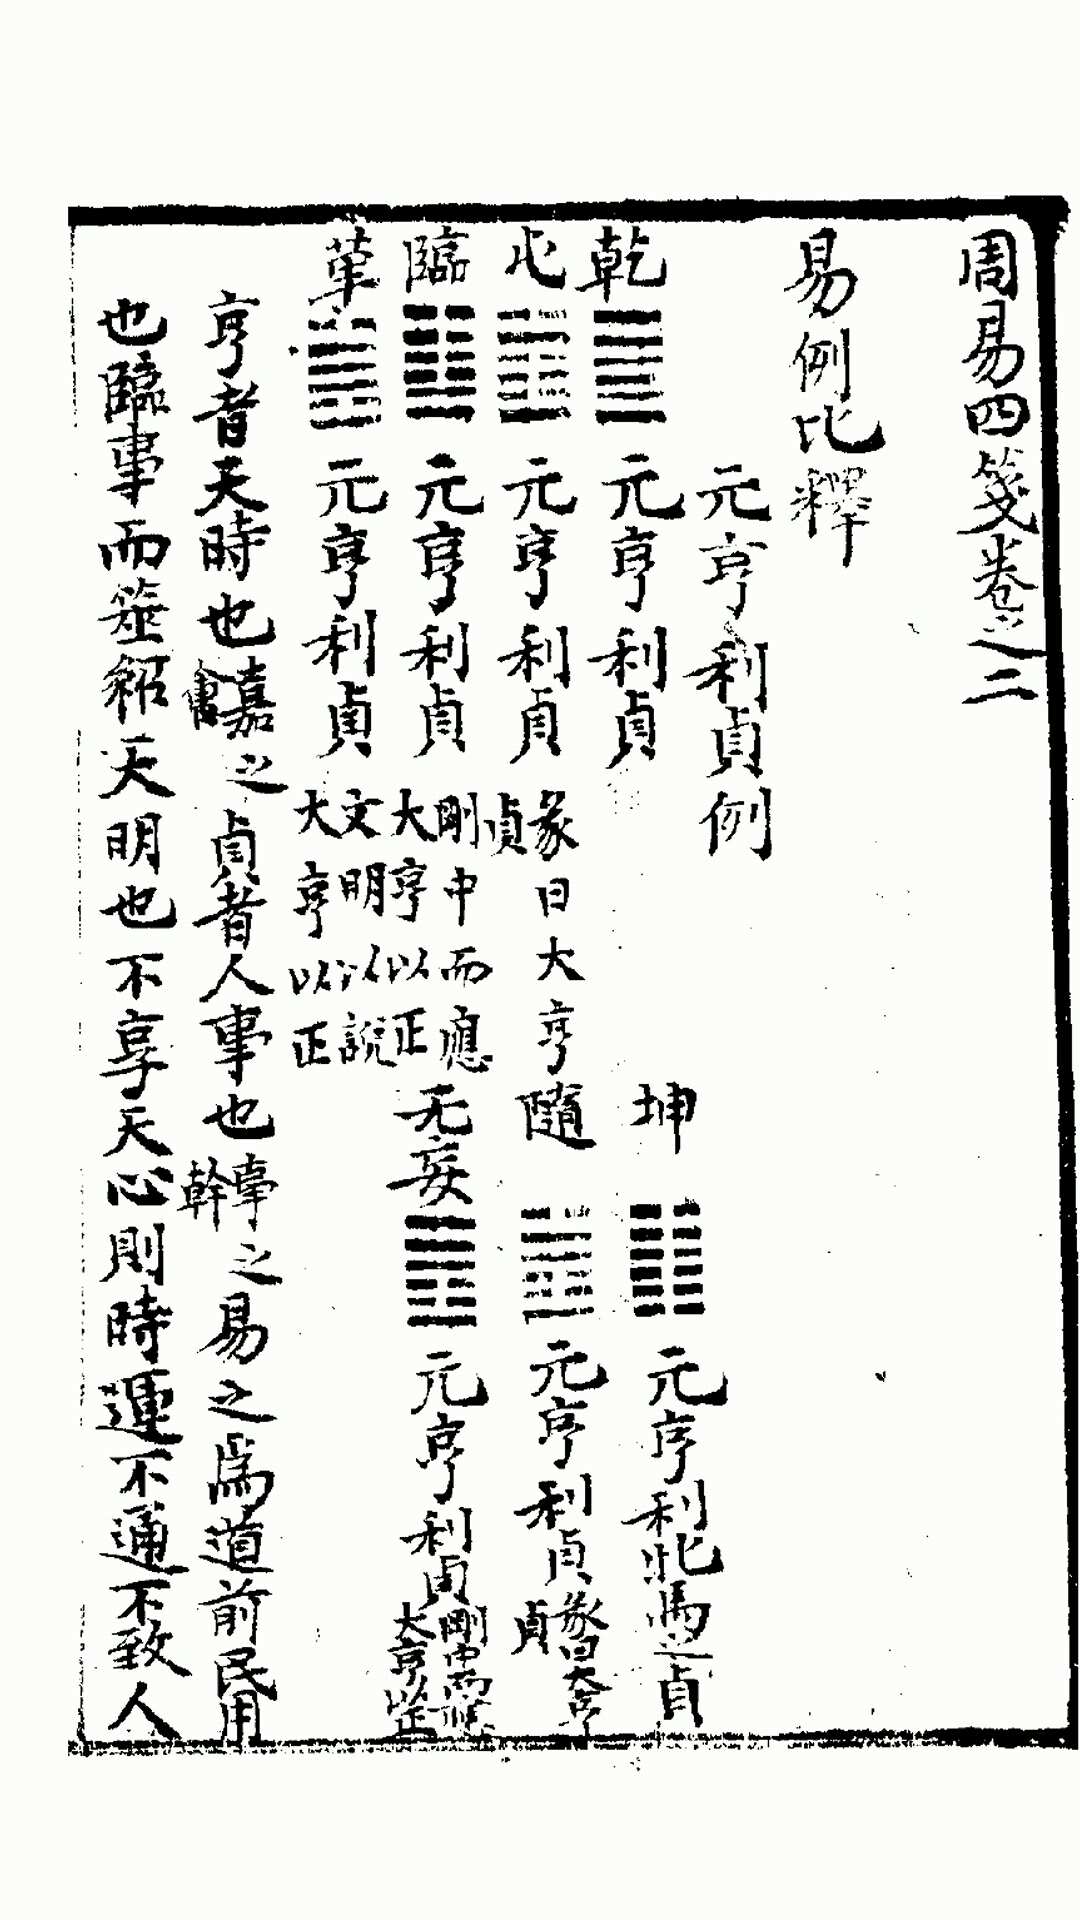 周易四箋卷之二
易例比釋
元亨利貞例
乾䷀元亨利貞 坤䷁元亨利牝馬之貞
屯䷂元亨利貞彖曰大亨貞 隨䷐元亨利貞彖曰大亨貞
臨䷒元亨利貞剛中而應大亨以正 无妄䷘元亨利貞剛中而應大亨以正
革䷰元亨利貞文明以說大亨以正
亨者天時也嘉之會貞者人事也事之幹易之爲道前民用
也臨事而筮紹天明也不享天心則時運不通不致人